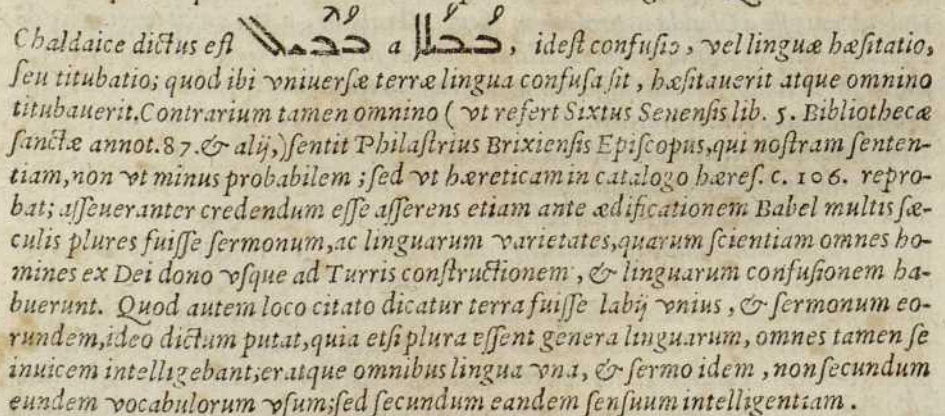 Chaldaice dictus est a , idest confusio, vel linguæ hæsitatio,
seu titubatio; quod ibi vniuersæ terræ lingua confusa sit, hæsitauerit atque omnino
titubauerit. Contrarium tamen omnino ( vt refert Sixtus Senensis lib. 5. Bibliothecæ
sanctæ annot. 87. & alij,) sentit Philastrius Brixiensis Episcopus, qui nostram senten-
tiam, non vt minus probabilem ; sed vt hæreticam in catalogo hæres. c. 106. repro-
bat; asseueranter credendum esse asserens etiam ante ædificationem Babel multis sæ-
culis plures fuisse sermonum, ac linguarum varietates, quarum scientiam omnes ho-
mines ex Dei dono vsque ad Turris constructionem, & linguarum confusionem ha-
buerunt. Quod autem loco citato dicatur terra fuisse labij vnius, & sermonum eo-
rundem, ideo dictum putat, quia etsi plura essent genera linguarum, omnes tamen se
inuicem intelligebant; eratque omnibus lingua vna, & sermo idem , non secundum
eundem vocabulorum vsum; sed secundum eandem sensuum intelligentiam .